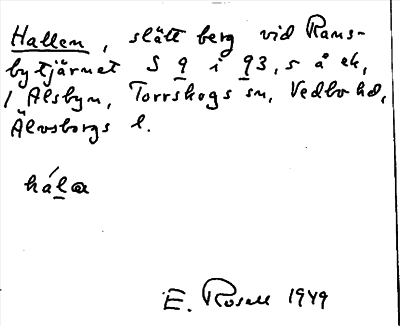 Hallen, slätt berg vid Rams-
bytjärnet S 9 i 93, s å ek,
/ Alsbyn, Torrskogs sn, Vedbo hd,
Älvsborgs l.
hálæ
E. Rosell 1949